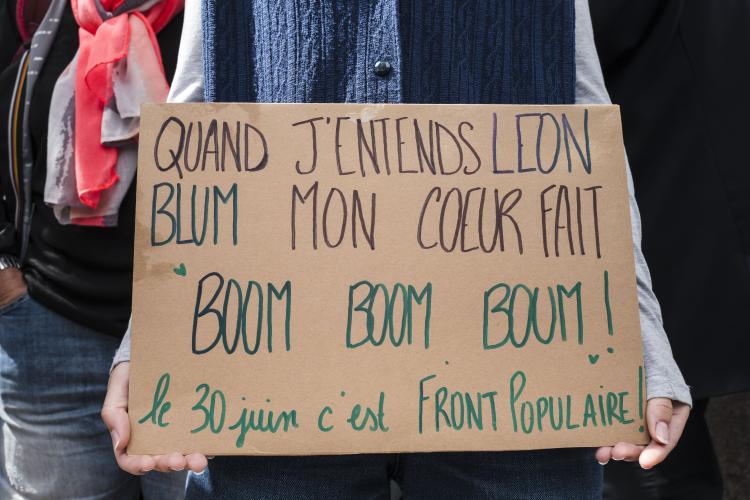 QUAND J'ENTENDS LEON
BLUM MON COEUR FAIT
BOOM BOOM BOUM !
le 30 juin c'est FRONT POPULAIRE!